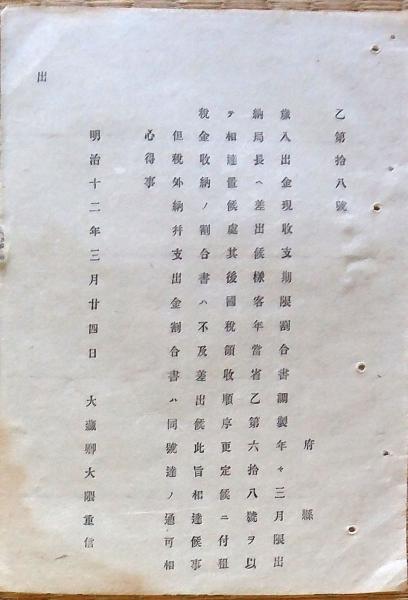 乙第拾八號
府縣
歲入出金現收支期限割合書調製年々三月限出
納局長ヘ差出候樣客年當省乙第六拾八號ヲ以
テ相達置候處其後國稅領收順序更定候ニ付租
稅金收納ノ割合書ハ不及差出候此旨相達候事
但稅外納幷支出金割合書ハ同號達ノ通可相
心得事
明治十二年三月廿四日 大藏卿大隈重信
出